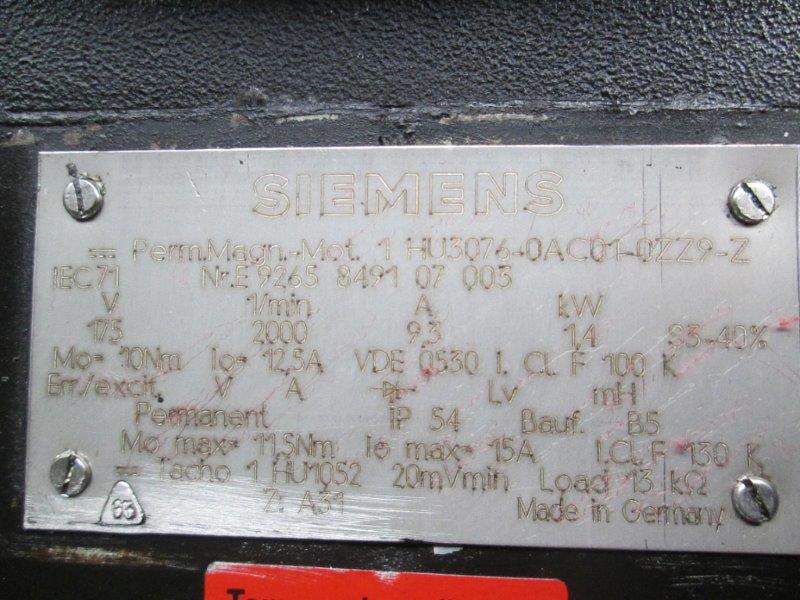 SIEMENS
⎓ Perm.Magn.-Mot. 1 HU3076-0AC01-0ZZ9-Z
IEC71 Nr.E 9265 8491 07 003
V 1/min A kW
175 2000 9,3 1,4 S3-40%
Mo= 10Nm Io= 12,5A VDE 0530 I. Cl. F 100 K
Err./excit. V A Lv mH
Permanent IP 54 Bauf. B5
Mo max= 11,5Nm Io max= 15A I.Cl.F 130 K
⎓ Tacho 1 HU1052 20mVmin Load 13 kΩ
Z: A31 Made in Germany
63